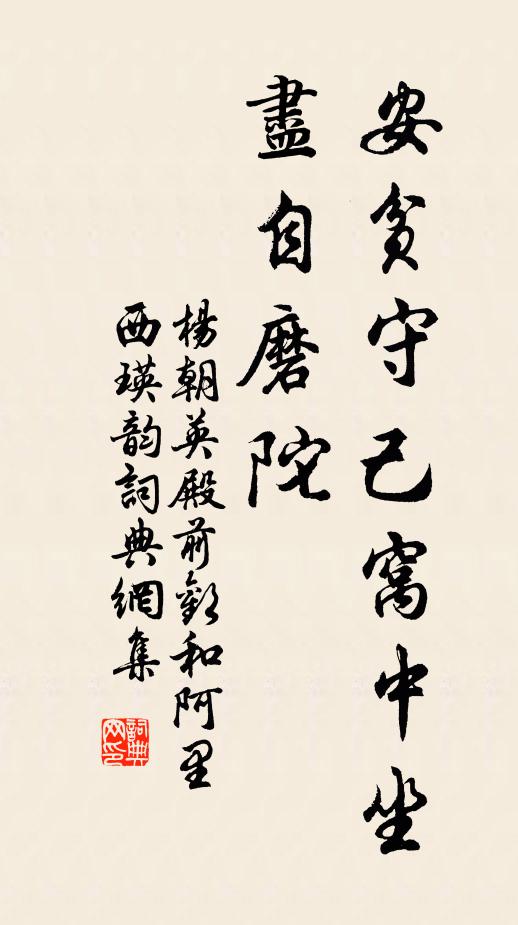 安貧守己窩中坐
盡自磨陀
楊朝英殿前歡和阿里
西瑛韵詞典網集
詞典網印